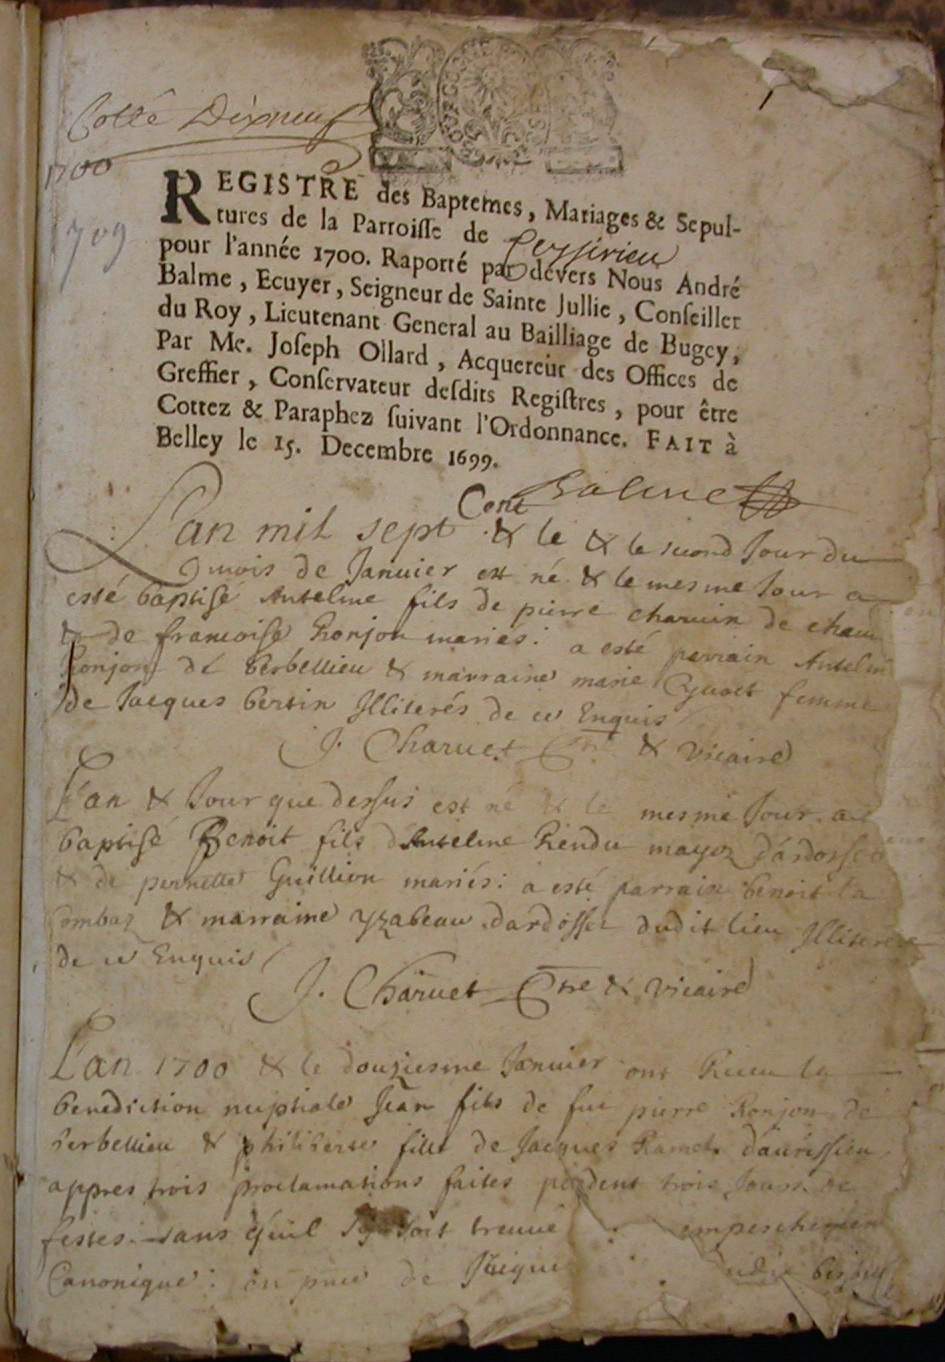 Cotté Dixneuf
1700
1709
REGISTRE des Baptemes, Mariages & Sepul-
tures de la Parroisse de Ceyzirieu
pour l'année 1700. Raporté par devers Nous André
Balme, Ecuyer, Seigneur de Sainte Jullie, Conseiller
du Roy, Lieutenant General au Bailliage de Bugey,
Par Me. Joseph Ollard, Acquereur des Offices de
Greffier, Conservateur desdits Registres, pour être
Cottez & Paraphez suivant l'Ordonnance. FAIT à
Belley le 15. Decembre 1699.
Balme
Cent
L'an mil sept & le & le second Jour du
mois de Januier est né & le mesme Jour a
esté baptisé Antelme fils de pierre charuin de
& de francoise Ronjon mariés: a esté parrain Antelm
Ronjon de Verbellieu & marraine marie femme
de Jacques bertin Illiterés de ce Enquis
J. Charuet & vicaire
L'an & Jour que dessus est né & le mesme Jour a
baptisé Benoit fils d'Antelme Rendu mayoz d'ardosset
& de pernette Guillion mariés: a esté parrain benoit la
combaz & marraine yzabeau dardosset dudit lieu Illiteres
de ce Enquis
J. Charuet Ctre & vicaire
L'an 1700 & le douziesme Januier ont Receu la
benediction nuptiale Jean fils de feu pierre Ronjon de
Verbellieu & philiberte fille de Jacques Ramel d'aurissieu
appres trois proclamations faites pendent trois Jours de
festes sans qu'il se soit treuué empeschemen
Canonique: en pnce de